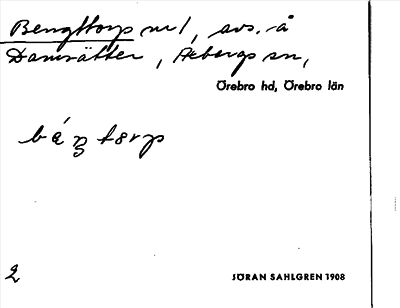 Bengttorps nr 1, avs. å
Damsätter, Axbergs sn,
Örebro hd, Örebro län
2
JÖRAN SAHLGREN 1908